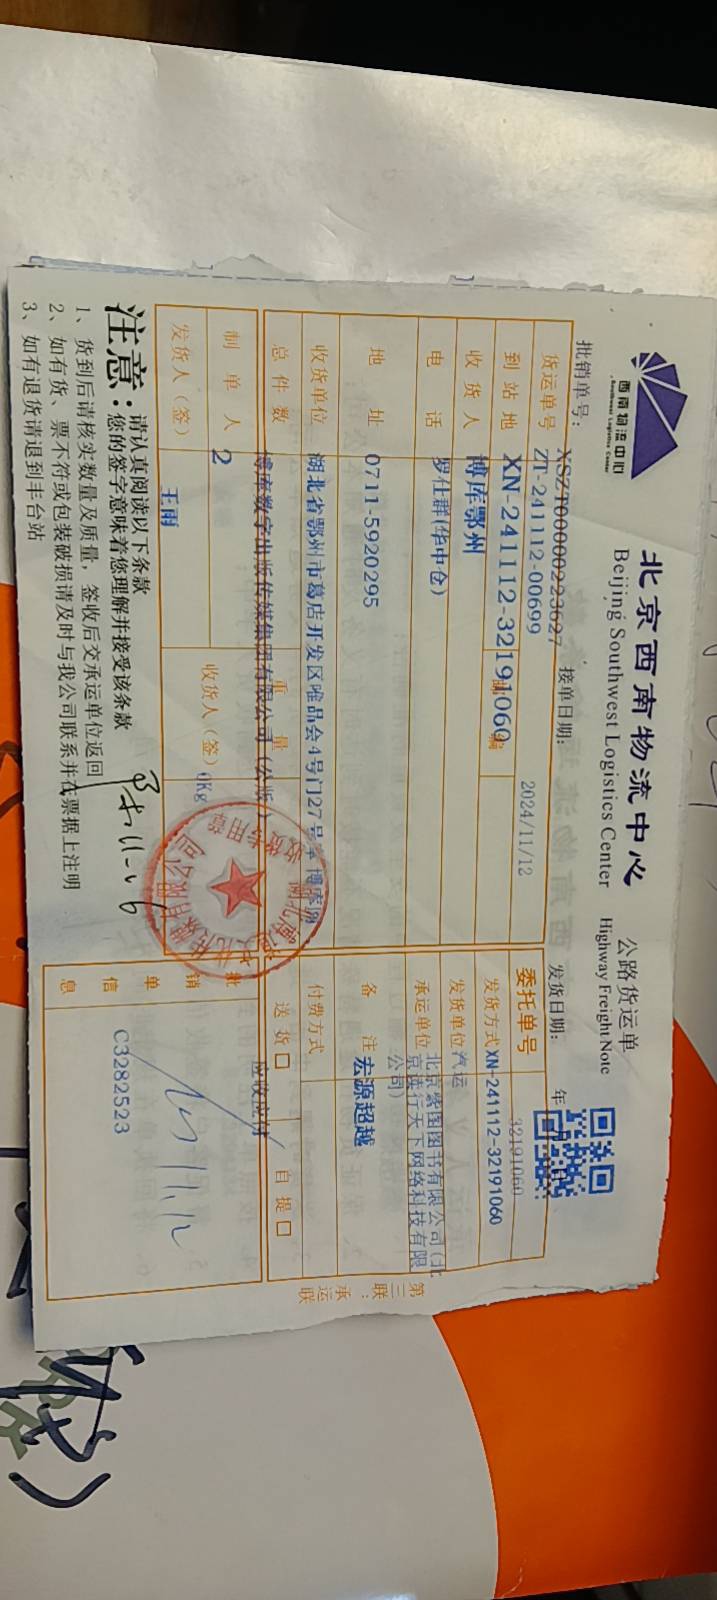 西南物流中心
Southwest Logistics Center
北京西南物流中心
Beijing Southwest Logistics Center
公路货运单
Highway Freight Note
批销单号: XSZT00000223627 接单日期: 2024/11/12 发货日期: 年
货运单号 ZT-241112-00699
委托单号 32191060
到站地 XN-241112-32191060
发货方式 XN-241112-32191060
收货人 博库鄂州
发货单位 汽运
电话 罗仕群(华中仓)
承运单位 北京紫图图书有限公司(北京读行天下网络科技有限公司)
地址 0711-5920295
备注 宏源超越
收货单位 湖北省鄂州市葛店开发区唯品会4号门27号库 博库
付费方式
总件数 博库数字出版传媒集团有限公司(公版)
重量
送货□ 应收应付 自提□
制单人 2
收货人(签) 0Kg
发货人(签) 王雨
批销单信息 C3282523
11.12
收货专用章
注意:
请认真阅读以下条款
您的签字意味着您理解并接受该条款
1、货到后请核实数量及质量，签收后交承运单位返回
2、如有货、票不符或包装破损请及时与我公司联系并在票据上注明
3、如有退货请退到丰台站
第三联：承运联